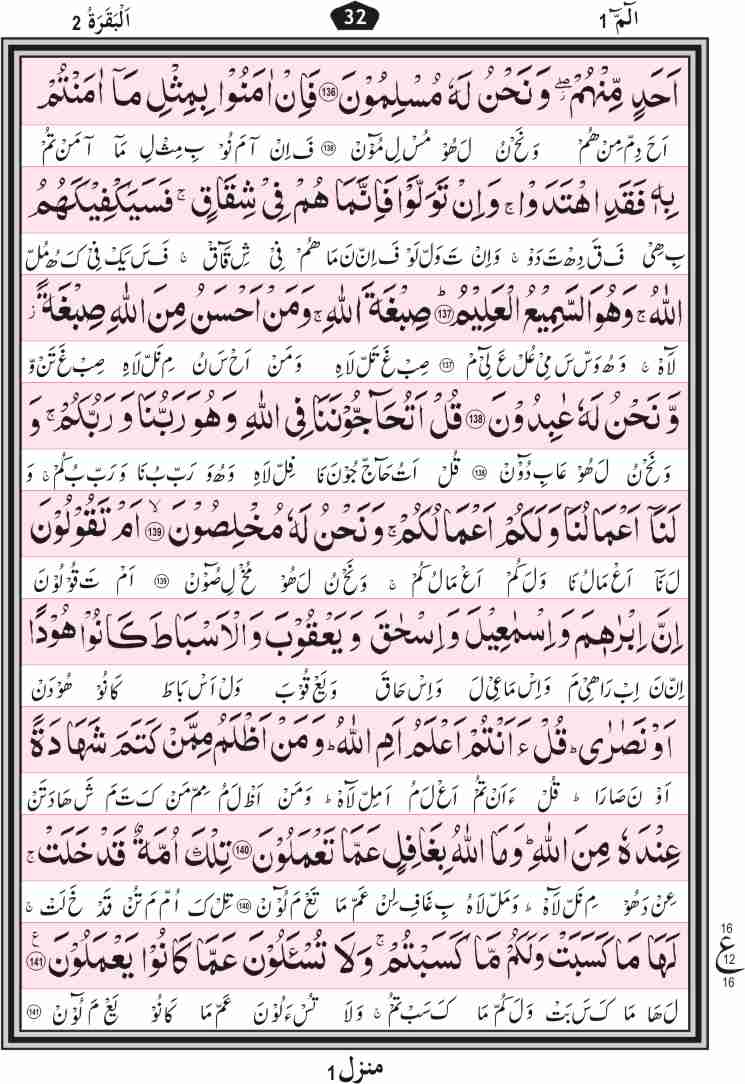 الٓمّٓ 1
32
اَلْبَقَرَةُ 2
اَحَدٍ مِّنْهُمْ ۖ وَنَحْنُ لَهٗ مُسْلِمُوْنَ 136 فَاِنْ اٰمَنُوْا بِمِثْلِ مَاۤ اٰمَنْتُمْ
اَحَ دِمّ مِنْ هُمْ وَنَحْنُ لَهُوْ مُسْ لِ مُوْٓنْ 136 فَ اِنْ آ مَ نُوْ بِ مِثْ لِ مَآ آ مَنْ تُمْ
بِهٖ فَقَدِ اهْتَدَوْا ۚ وَاِنْ تَوَلَّوْا فَاِنَّمَا هُمْ فِيْ شِقَاقٍ ۚ فَسَيَكْفِيْكَهُمُ
بِ هِيْ فَ قَ دِهْ تَ دَوْ ۚ وَاِنْ تَ وَلّ لَوْ فَ اِنّ نَ مَا هُمْ فِيْ شِ قَآقْ ۚ فَ سَ يَكْ فِيْ كَ هُ مُلّ
اللّٰهُ ۚ وَهُوَ السَّمِيْعُ الْعَلِيْمُ ؕ 137 صِبْغَةَ اللّٰهِ ۚ وَمَنْ اَحْسَنُ مِنَ اللّٰهِ صِبْغَةً ؗ
لَآهْ ۚ وَ هُ وَسّ سَ مِيْ عُلْ عَ لِيْٓمْ 137 صِبْ غَ تَلّ لَاهِ وَ مَنْ اَحْ سَ نُ مِ نَلّ لَاهِ صِبْ غَ تَنْ وّ
وَّنَحْنُ لَهٗ عٰبِدُوْنَ 138 قُلْ اَتُحَآجُّوْنَنَا فِي اللّٰهِ وَهُوَ رَبُّنَا وَرَبُّكُمْ ۚ وَ
وَنَحْ نُ لَهُوْ عَابِ دُوْٓنْ 138 قُلْ اَتُ حَآجّ جُوْنَ نَا فِلّ لَاهِ وَهُوَ رَبّ بُ نَا وَ رَبّ بُ كُمْ ۚ وَ
لَنَاۤ اَعْمَالُنَا وَلَكُمْ اَعْمَالُكُمْ ۚ وَنَحْنُ لَهٗ مُخْلِصُوْنَ ۙ 139 اَمْ تَقُوْلُوْنَ
لَ نَآ اَعْ مَالُ نَا وَ لَ كُمْ اَعْ مَالُ كُمْ ۚ وَنَحْنُ لَهُوْ مُخْ لِ صُوْٓنْ 139 اَمْ تَ قُوْلُوْنَ
اِنَّ اِبْرٰهٖمَ وَاِسْمٰعِيْلَ وَاِسْحٰقَ وَيَعْقُوْبَ وَالْاَسْبَاطَ كَانُوْا هُوْدًا
اِنّ نَ اِبْ رَاهِيْ مَ وَاِسْ مَاعِيْ لَ وَاِسْ حَاقَ وَيَعْ قُوْبَ وَلْ اَسْ بَاطَ كَانُوْ هُوْدَنْ
اَوْ نَصٰرٰى ؕ قُلْ ءَاَنْتُمْ اَعْلَمُ اَمِ اللّٰهُ ؕ وَمَنْ اَظْلَمُ مِمَّنْ كَتَمَ شَهَادَةً
اَوْ نَ صَارَا ؕ قُلْ ءَ اَنْ تُمْ اَعْ لَ مُ اَمِلّ لَآهْ ؕ وَمَنْ اَظْ لَ مُ مِمّ مَنْ كَ تَ مَ شَ هَادَتَنْ
عِنْدَهٗ مِنَ اللّٰهِ ؕ وَمَا اللّٰهُ بِغَافِلٍ عَمَّا تَعْمَلُوْنَ 140 تِلْكَ اُمَّةٌ قَدْ خَلَتْ ۚ
عِنْ دَهُوْ مِ نَلّ لَآهْ ؕ وَمَلّ لَاهُ بِ غَافِ لِنْ عَمّ مَا تَعْ مَ لُوْٓنْ 140 تِلْ كَ اُمّ مَ تُنْ قَدْ خَ لَتْ ۚ
لَهَا مَا كَسَبَتْ وَلَكُمْ مَّا كَسَبْتُمْ ۚ وَلَا تُسْـَٔلُوْنَ عَمَّا كَانُوْا يَعْمَلُوْنَ 141 ع
لَ هَا مَا كَ سَ بَتْ وَ لَ كُمْ مَا كَ سَبْ تُمْ ۚ وَ لَا تُسْ ءَ لُوْنَ عَمّ مَا كَانُوْ يَعْ مَ لُوْٓنْ 141
16
ع 12
16
منزل 1